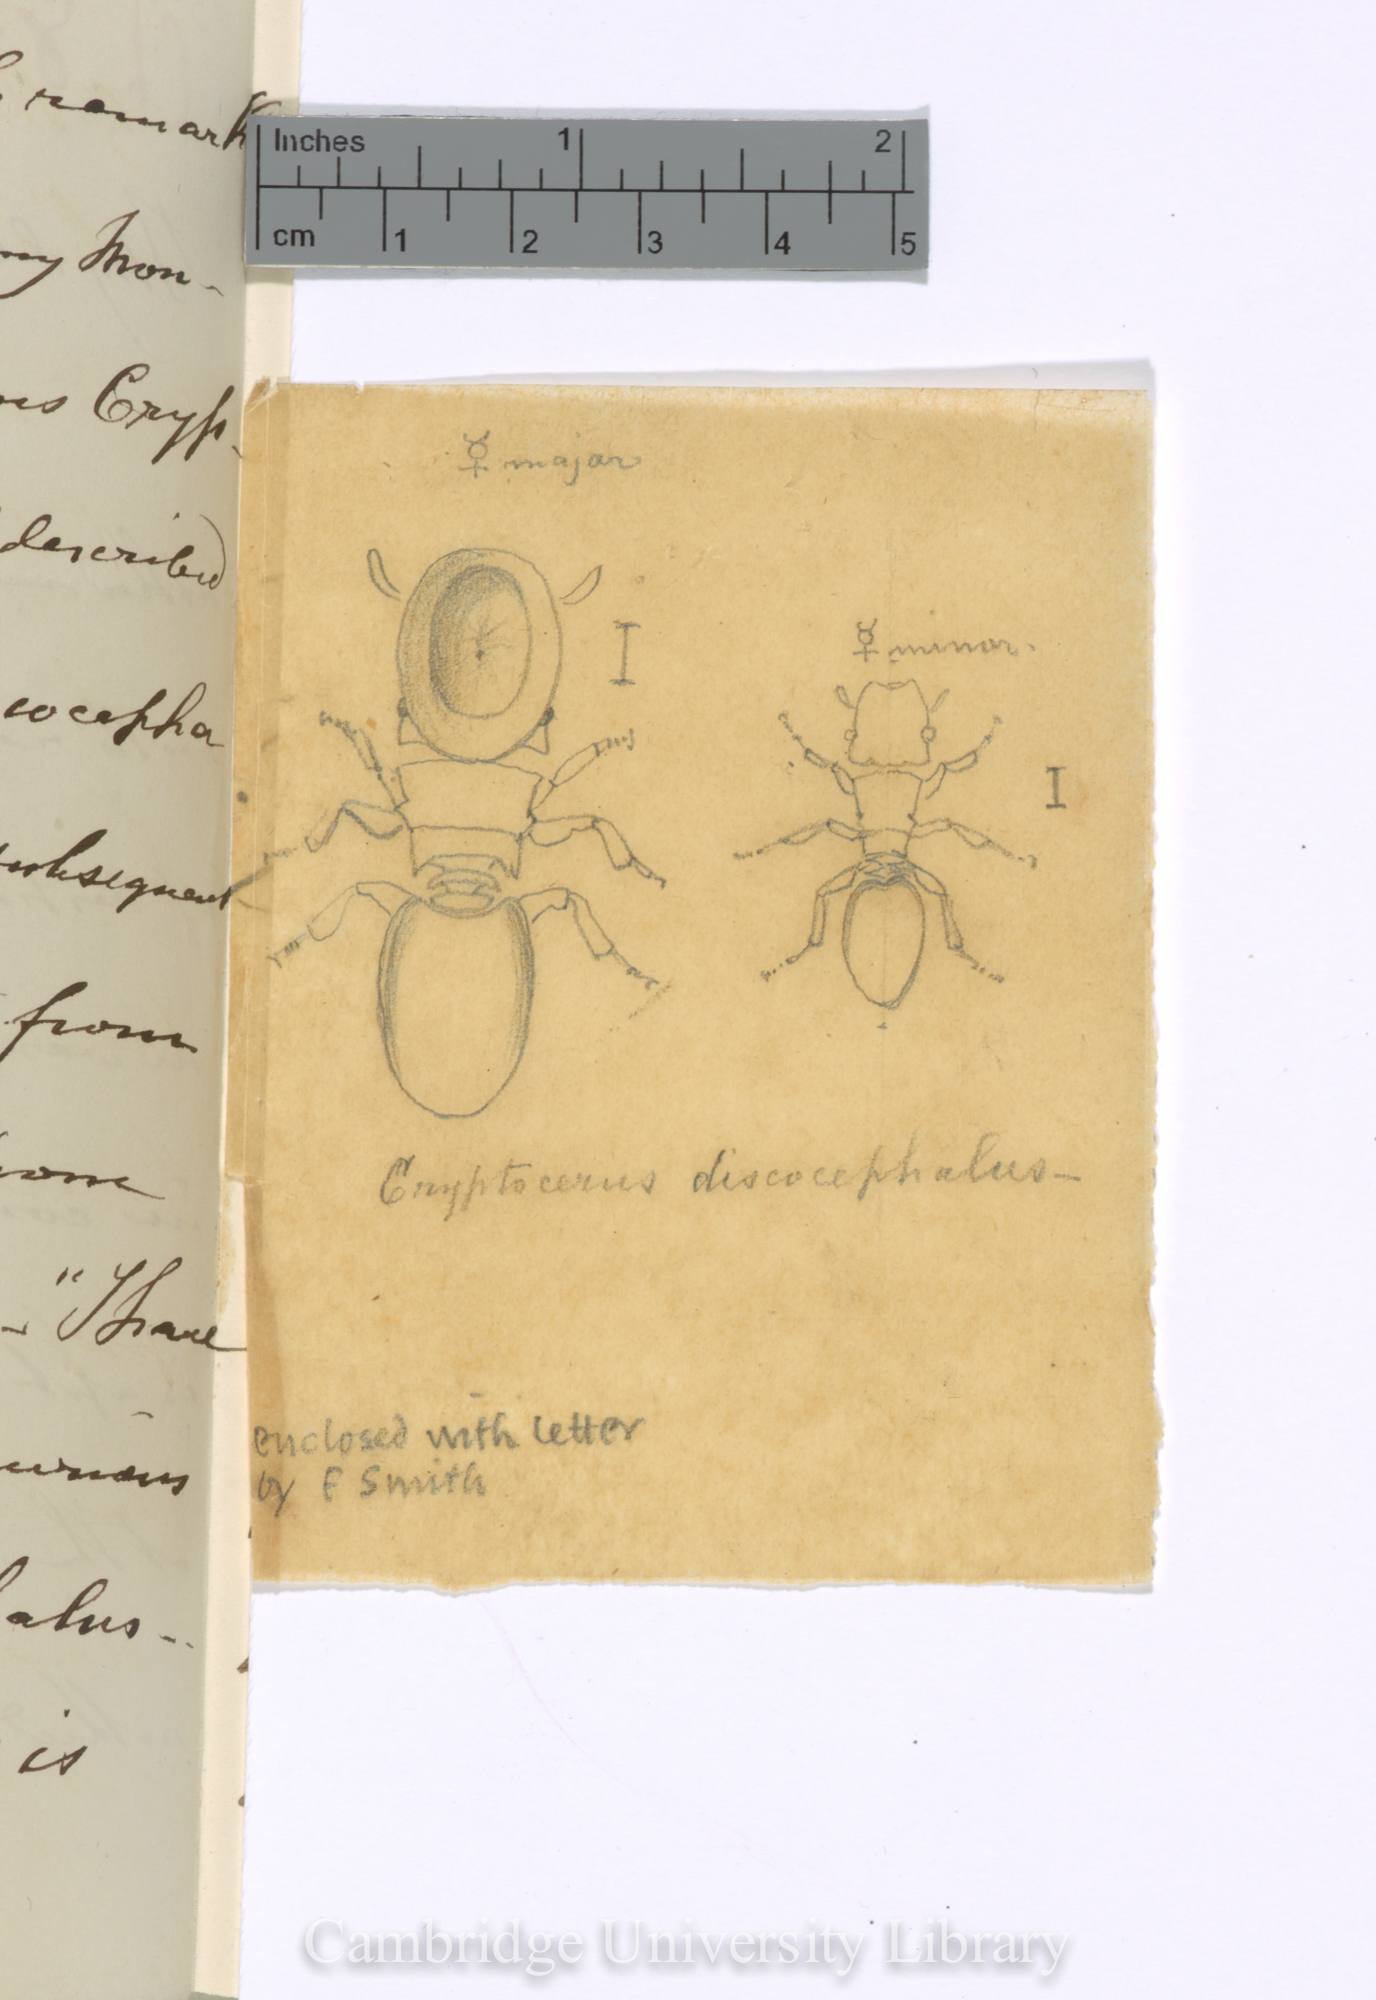 remark
my Mon-
Cryp-
described
cocepha
subsequent
from
"I have
alus-
is
Inches 1 2
cm 1 2 3 4 5
☿ major
☿ minor.
Cryptocerus discocephalus-
enclosed with letter
by F Smith
Cambridge University Library